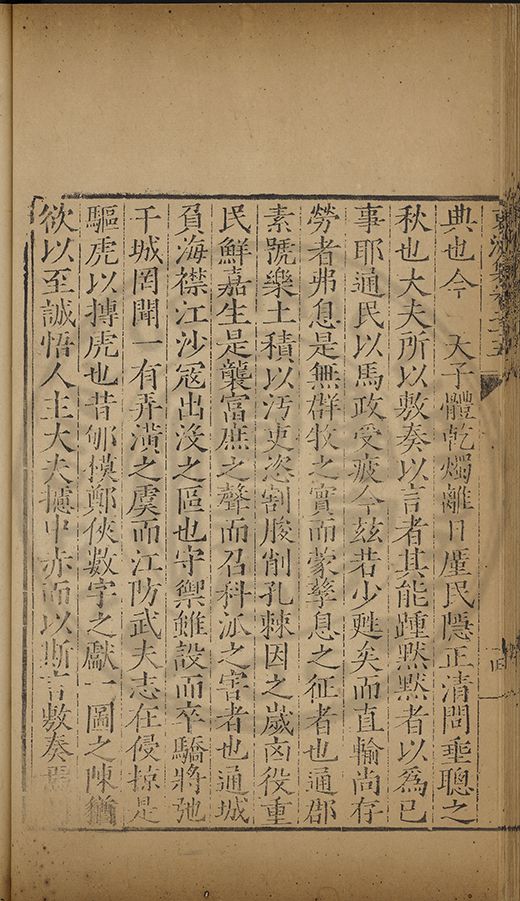 典也今　天子體乾燭離日廑民隱正清問垂聰之
秋也大夫所以敷奏以言者其能踵默默者以爲已
事耶通民以馬政受疲今玆若少甦矣而直輸尚存
勞者弗息是無群牧之實而蒙孳息之征者也通郡
素號樂土積以汚吏恣割朘削孔棘因之歲凶役重
民鮮嘉生是襲富庶之聲而召科派之害者也通城
負海襟江沙寇出沒之區也守禦雖設而卒驕將弛
干城罔聞一有弄潢之虞而江防武夫志在侵掠是
驅虎以摶虎也昔邺摸鄭俠數字之獻一圖之陳猶
欲以至誠悟人主大夫攄中赤而以斯言敷奏焉